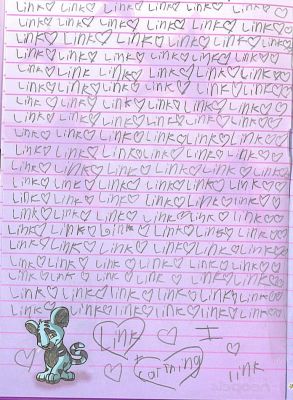 Link♡ Link♡ Link♡ Link♡ Link♡ Link♡♡
Link♡ Link♡ Link♡ Link♡ Link♡ Link♡
Link♡ Link♡ Link♡ Link♡ Link♡ Link♡
Link♡ Link♡ Link♡ Link♡ Link♡ Link♡
Link♡ Link♡ Link♡ Link♡ Link♡ Link♡♡
Link♡ Link♡ Link♡ Link♡ Link♡ Link♡
Link♡ Link♡ Link♡ Link♡ Link♡ Link♡♡
Link♡ Link♡ Link♡ Link♡ Link♡ Link♡
Link♡ Link♡ Link♡ Link♡ Link♡ Link♡♡
Link♡ Link♡ Link♡ Link♡ Link♡ Link♡
Link♡ Link♡ Link♡ Link♡ Link♡ Link♡
Link♡ Link♡ Link♡ Link♡ Link♡ Link♡
Link♡ Link♡ Link♡ Link♡ Link♡ Link♡♡
Link♡ Link♡ Link♡ Link♡ Link♡ Link♡♡
Link♡ Link♡ Link♡ Link♡ Link♡ Link♡♡
Link♡ Link♡ Link♡ Link♡ Link♡ Link♡♡
Link♡ Link♡ Link♡ Link♡ Link♡ Link♡♡
Link♡ Link♡ Link♡ Link♡ Link♡ Link♡
Link♡ Link♡ Link♡ Link♡ Link♡ Link♡
Link♡ Link♡ Link♡ Link♡ Link♡ Link♡♡
Link ♡ I
♡ ♡
link
neopets